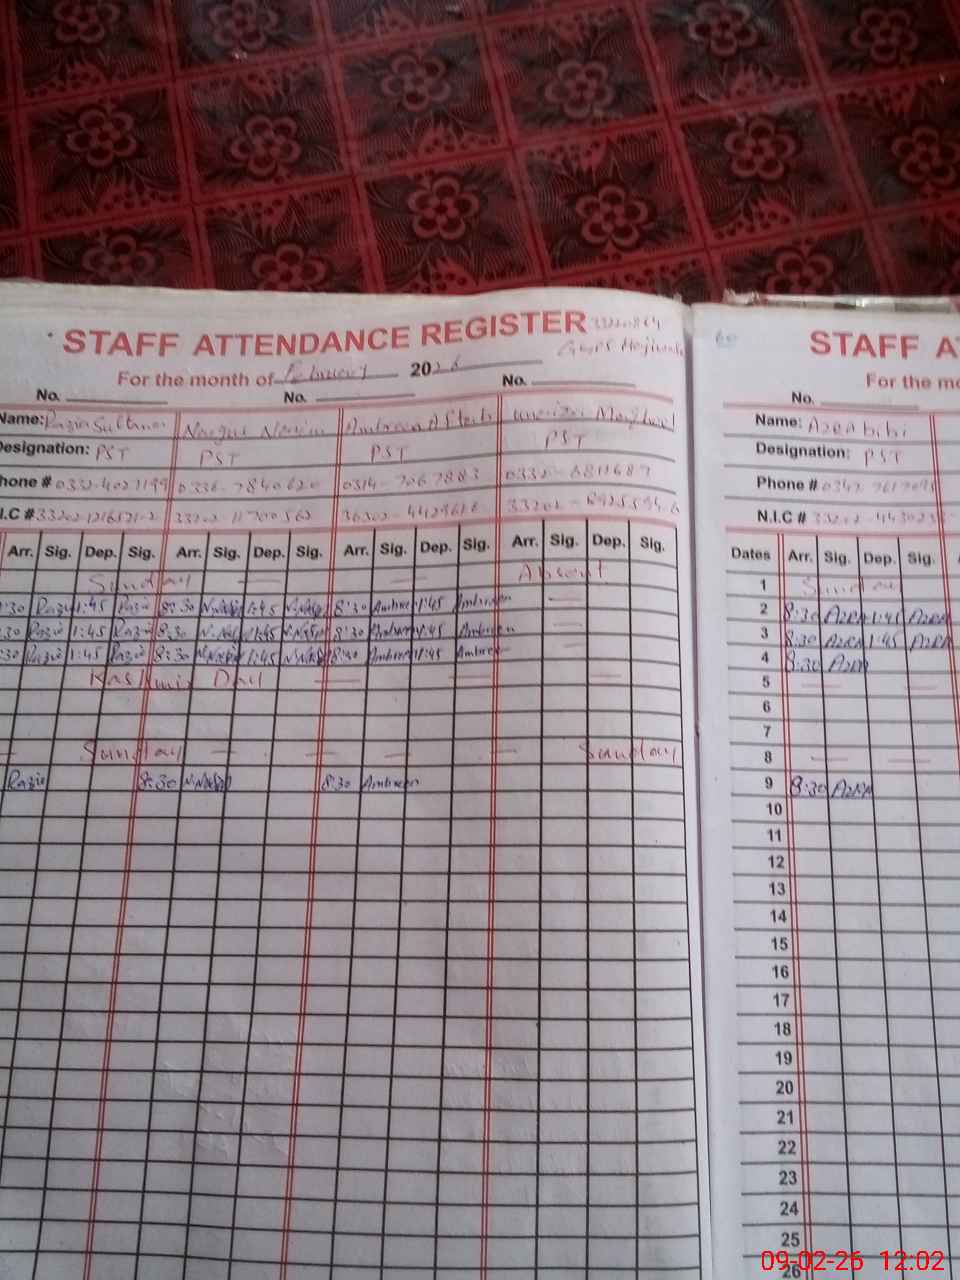 STAFF ATTENDANCE REGISTER 33220864
GGPS
For the month of February 2026
No. No. No.
Name: Razia Sultana Nargis Nasim Ambreen Aftab
Designation: PST PST PST PST
Phone # 0332-4027199 0336-7840620 0314-7067883 0332-6811687
N.I.C # 33202-1216521-2 33202
Arr. Sig. Dep. Sig. Arr. Sig. Dep. Sig. Arr. Sig. Dep. Sig. Arr. Sig. Dep. Sig.
Sunday — — Absent
:30 Razia 1:45 Razia 8:30 N.Nasim 1:45 N.Nasim 8:30 Ambreen 1:45 Ambreen —
:30 Razia 1:45 Razia 8:30 N.Nasim 1:45 N.Nasim 8:30 Ambreen 1:45 Ambreen —
:30 Razia 1:45 Razia 8:30 N.Nasim 1:45 N.Nasim 8:30 Ambreen 1:45 Ambreen —
Kashmir Day — — —
— Sunday — — — — Sunday
Razia 8:30 N.Nasim 8:30 Ambreen
60
STAFF A
For the mo
No.
Name: Azra bibi
Designation: PST
Phone # 0347
N.I.C # 33202-44
Dates Arr. Sig. Dep. Sig.
1 Sunday
2 8:30 AZRA 1:45 AZRA
3 8:30 AZRA 1:45 AZRA
4 8:30 AZRA
5 — —
6
7
8 — —
9 8:30 AZRA
10
11
12
13
14
15
16
17
18
19
20
21
22
23
24
25
26
09-02-26 12:02